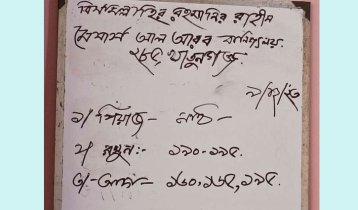 বিসমিল্লাহির রহমানির রাহীম
মেসার্স আল আরব বানিজ্যালয়.
২৮৫ খাতুনগঞ্জ.
১/ পিয়াজ -
২/ রশুন:- ১৯০-১৯৫.
৩/- আদা - ১৬০, ১৬৫, ১৯৫.